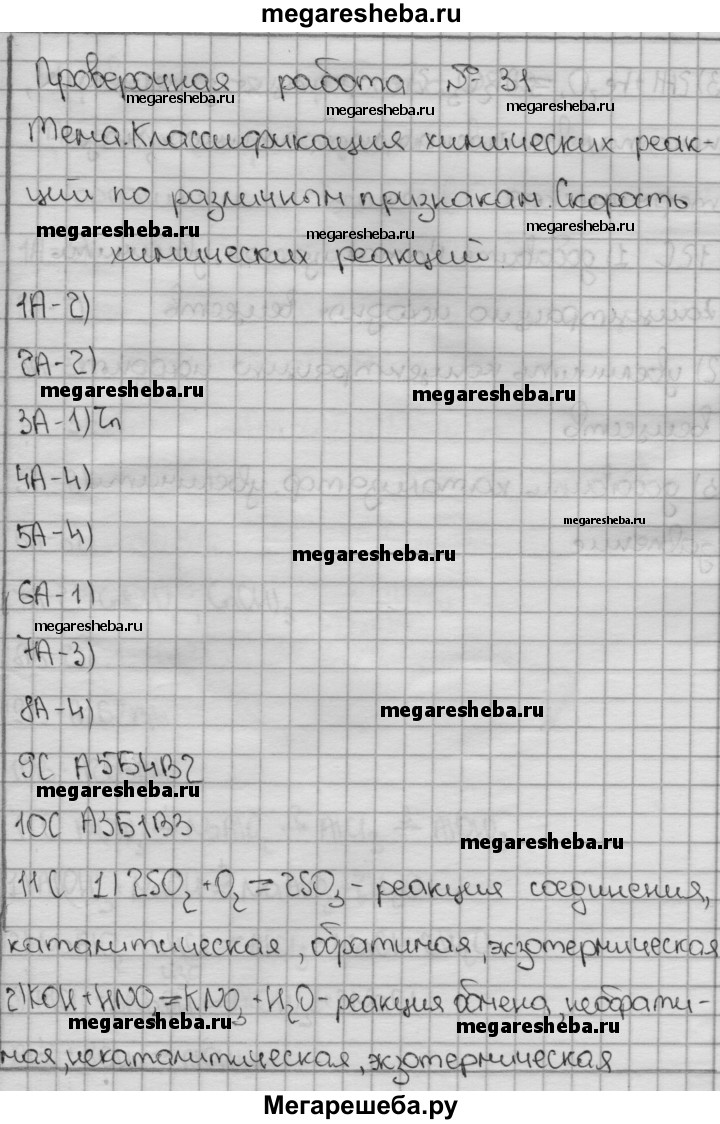 megaresheba.ru
Проверочная работа № 31
megaresheba.ru megaresheba.ru megaresheba.ru
Тема. Классификация химических реак-
ций по различным признакам. Скорость
megaresheba.ru megaresheba.ru megaresheba.ru
химических реакций.
1А-2)
2А-2)
megaresheba.ru megaresheba.ru
3А-1) Zn
4А-4)
megaresheba.ru
5А-4)
megaresheba.ru
6А-1)
megaresheba.ru
7А-3)
8А-4)
megaresheba.ru
9С А5Б4В2
megaresheba.ru
10С А3Б1В3
megaresheba.ru
11С 1) 2SO2 + O2 = 2SO3 - реакция соединения,
каталитическая, обратимая, экзотермическая
2) KOH + HNO3 = KNO3 + H2O - реакция обмена, необрати-
megaresheba.ru megaresheba.ru
мая, некаталитическая, экзотермическая
Мегарешеба.ру